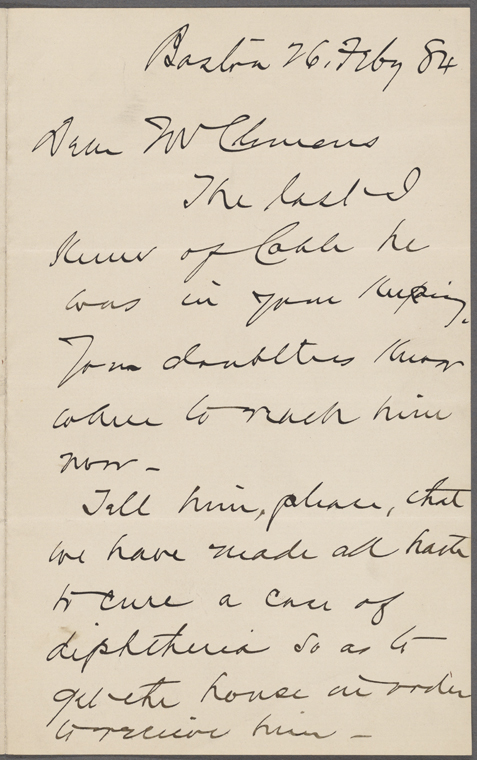 Boston 26. Feby 84
Dear Mr Clemens
The last I
knew of Cable he
was in your keeping.
You doubtless know
where to reach him
now -
Tell him, please, that
we have made all haste
to cure a case of
diphtheria so as to
get the house in order
to receive him -